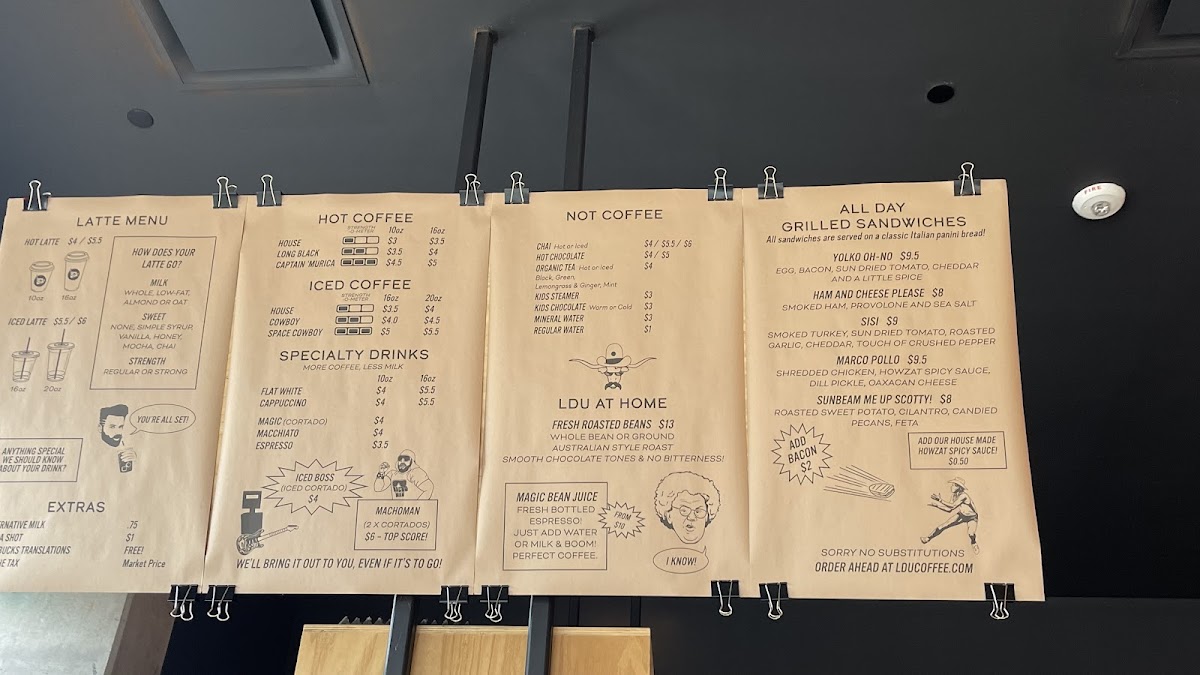 LATTE MENU
HOT LATTE $4 / $5.5
10oz 16oz
ICED LATTE $5.5/ $6
16oz 20oz
HOW DOES YOUR
LATTE GO?
MILK
WHOLE, LOW-FAT,
ALMOND OR OAT
SWEET
NONE, SIMPLE SYRUP,
VANILLA, HONEY,
MOCHA, CHAI
STRENGTH
REGULAR OR STRONG
YOU'RE ALL SET!
ANYTHING SPECIAL
WE SHOULD KNOW
ABOUT YOUR DRINK?
EXTRAS
RNATIVE MILK .75
A SHOT $1
BUCKS TRANSLATIONS FREE!
HE TAX Market Price
HOT COFFEE
STRENGTH
-O-METER 10oz 16oz
HOUSE $3 $3.5
LONG BLACK $3.5 $4
CAPTAIN 'MURICA $4.5 $5
ICED COFFEE
STRENGTH
-O-METER 16oz 20oz
HOUSE $3.5 $4
COWBOY $4.0 $4.5
SPACE COWBOY $5 $5.5
SPECIALTY DRINKS
MORE COFFEE, LESS MILK
10oz 16oz
FLAT WHITE $4 $5.5
CAPPUCCINO $4 $5.5
MAGIC (CORTADO) $4
MACCHIATO $4
ESPRESSO $3.5
ICED BOSS
(ICED CORTADO)
$4
MACHOMAN
(2 X CORTADOS)
$6 - TOP SCORE!
WE'LL BRING IT OUT TO YOU, EVEN IF IT'S TO GO!
NOT COFFEE
CHAI Hot or Iced $4 / $5.5 / $6
HOT CHOCOLATE $4 / $5
ORGANIC TEA Hot or Iced $4
Black, Green,
Lemongrass & Ginger, Mint
KIDS STEAMER $3
KIDS CHOCOLATE Warm or Cold $3
MINERAL WATER $3
REGULAR WATER $1
LDU AT HOME
FRESH ROASTED BEANS $13
WHOLE BEAN OR GROUND
AUSTRALIAN STYLE ROAST
SMOOTH CHOCOLATE TONES & NO BITTERNESS!
MAGIC BEAN JUICE
FRESH BOTTLED
ESPRESSO!
JUST ADD WATER
OR MILK & BOOM!
PERFECT COFFEE.
FROM
$10
I KNOW!
ALL DAY
GRILLED SANDWICHES
All sandwiches are served on a classic Italian panini bread!
YOLKO OH-NO $9.5
EGG, BACON, SUN DRIED TOMATO, CHEDDAR
AND A LITTLE SPICE
HAM AND CHEESE PLEASE $8
SMOKED HAM, PROVOLONE AND SEA SALT
SISI $9
SMOKED TURKEY, SUN DRIED TOMATO, ROASTED
GARLIC, CHEDDAR, TOUCH OF CRUSHED PEPPER
MARCO POLLO $9.5
SHREDDED CHICKEN, HOWZAT SPICY SAUCE,
DILL PICKLE, OAXACAN CHEESE
SUNBEAM ME UP SCOTTY! $8
ROASTED SWEET POTATO, CILANTRO, CANDIED
PECANS, FETA
ADD
BACON
$2
ADD OUR HOUSE MADE
HOWZAT SPICY SAUCE!
$0.50
SORRY NO SUBSTITUTIONS
ORDER AHEAD AT LDUCOFFEE.COM
FIRE